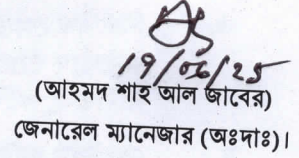 19/06/25
(আহমদ শাহ আল জাবের)
জেনারেল ম্যানেজার (অঃদাঃ)।